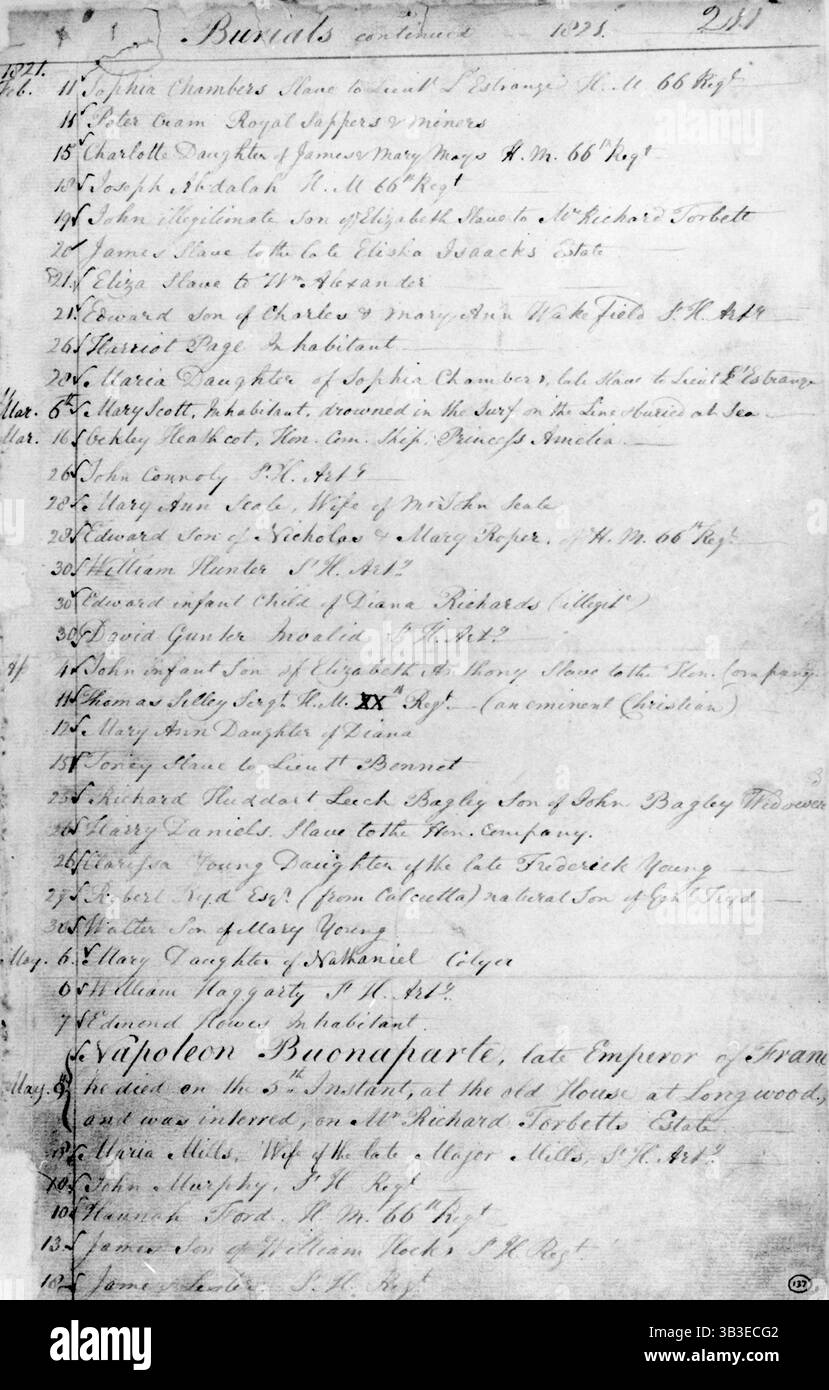 Burials continued 1821.
1821.
Feb. 11 Sophia Chambers Slave to Lieut. L'Estrange H. M 66 Regt
14 Peter Cram Royal Sappers & Miners
15 Charlotte Daughter of James & Mary Mays H. M. 66th Regt
18 Joseph Abdalah H. M 66th Regt
19 John illegitimate Son of Elizabeth Slave to Mr Richard Torbett
20 James Slave to the late Elisha Isaacks Estate
21. Eliza Slave to Wm Alexander
21. Edward Son of Charles & Mary Ann Wakefield St. H. Arty
26 Harriot Page Inhabitant
28 Maria Daughter of Sophia Chambers, late Slave to Lieut L'Estrange
Mar. 6th Mary Scott, Inhabitant, drowned in the Surf on the Line & buried at Sea
Mar. 16 Heathcot, Hon. Com. Ship, Princess Amelia
26 John Connoly St. H. Arty
28 Mary Ann Seale, Wife of Mr John Seale
29 Edward Son of Nicholas & Mary Roper, of H. M. 66th Regt
30 William Hunter St H. Arty
30 Edward infant Child of Diana Richards (illegite)
30 David Gunter Invalid St H. Arty
Ap 4 John Infant Son of Elizabeth Anthony Slave to the Hon. Company
11 Thomas Selley Sergt H. M. XXth Regt (an eminent Christian)
12 Mary Ann Daughter of Diana
15 Toney Slave to Lieutt Bennet
25 Richard Huddart Leech Bagley Son of John Bagley Widower
26 Harry Daniels. Slave to the Hon. Company.
26 Clarissa Young Daughter of the late Frederick Young
27 Robert Kyd Esqr. (from Calcutta) natural Son of Genl. Kyd
30 Walter Son of Mary Young
May. 6. Mary Daughter of Nathaniel Colyer
6 William Haggarty St H. Arty.
7 Edmond Howes Inhabitant.
Napoleon Buonaparte, late Emperor of France
May. 9th he died on the 5th Instant, at the old House at Longwood,
and was interred, on Mr Richard Torbetts Estate
Maria Mills, Wife of the late Major Mills, St. H. Arty.
10 John Murphy, St H Regt
10 Hannah Ford. H. M. 66th Regt
13 James Son of William Hocks St H Regt
18 James St. H. Regt
137
alamy
Image ID: 3B3ECG2
www.alamy.com